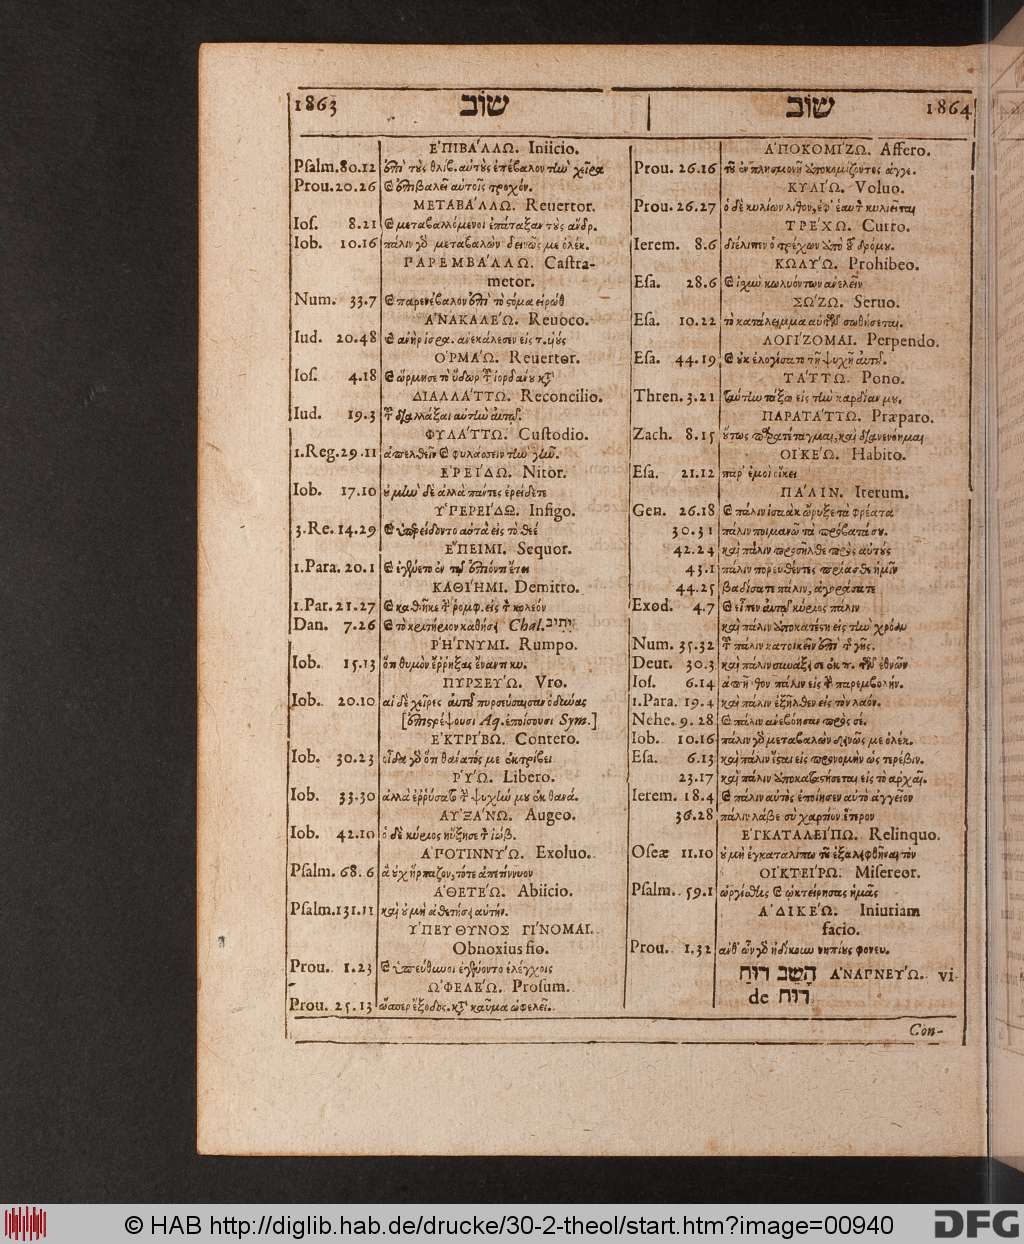 1863 שׁוֹב
ἘΠΙΒΆΛΛΩ. Iniicio.
Psalm. 80.12 ἐπὶ τοὺς θλίβ. αὐτοὺς ἐπέβαλον τὴν χεῖρα
Prou. 20.26 καὶ ἐπιβαλεῖ αὐτοῖς τροχόν.
ΜΕΤΑΒΆΛΛΩ. Reuertor.
Ios. 8.21 καὶ μεταβαλλόμενοι ἐπάταξαν τοὺς ἄνδρ.
Iob. 10.16 πάλιν γὰρ μεταβαλὼν δεινῶς με ὀλέκ.
ΠΑΡΕΜΒΆΛΛΩ. Castra-
metor.
Num. 33.7 καὶ παρενέβαλον ἐπὶ τὸ στόμα εἰρώθ
ἈΝΑΚΑΛΈΩ. Reuoco.
Iud. 20.48 καὶ ἀνὴρ ἰσρα. ἀνεκάλεσεν εἰς τ. υἱοὺς
ὉΡΜΆΩ. Reuertor.
Ios. 4.18 καὶ ὥρμησε τὸ ὕδωρ τοῦ ἰορδάνου κατὰ
ΔΙΑΛΛΆΤΤΩ. Reconcilio.
Iud. 19.3 τοῦ διαλλάξαι αὐτὴν αὐτῷ.
ΦΥΛΆΤΤΩ. Custodio.
1.Reg. 29.11 ἀπελθεῖν καὶ φυλάσσειν τὴν γῆν.
ἘΡΕΊΔΩ. Nitor.
Iob. 17.10 οὐ μὴν δὲ ἀλλὰ πάντες ἐρείδετε
ὙΠΕΡΕΊΔΩ. Infigo.
3.Re. 14.29 καὶ ὑπερείδοντο αὐτὰ εἰς τὸ θεέ
ἜΠΕΙΜΙ. Sequor.
1.Para. 20.1 καὶ ἐγένετο ἐν τῷ ἐπιόντι ἔτει
ΚΑΘΊΗΜΙ. Demitto.
1.Par. 21.27 καὶ καθῆκε τὴν ῥομφ. εἰς τὸν κολεόν
Dan. 7.26 καὶ τὸ κριτήριον καθήσῃ Chal. יְתִיב
ῬΉΓΝΥΜΙ. Rumpo.
Iob. 15.13 ὅτι θυμὸν ἔρρηξας ἔναντι κυ.
ΠΥΡΣΕΎΩ. Vro.
Iob. 20.10 αἱ δὲ χεῖρες αὐτοῦ πυρσεύσαισαν ὀδύνας
[ἐπιστρέψουσι Aq. ἐποίσουσι Sym.]
ἘΚΤΡΊΒΩ. Contero.
Iob. 30.23 οἶδα γὰρ ὅτι θάνατός με ἐκτρίψει
ῬΎΩ. Libero.
Iob. 33.30 ἀλλὰ ἐρρύσατο τὴν ψυχήν μου ἐκ θανά.
ΑΥΞΆΝΩ. Augeo.
Iob. 42.10 ὁ δὲ κύριος ηὔξησε τὸν ἰώβ.
ἈΠΟΤΙΝΝΎΩ. Exoluo.
Psalm. 68.6 ἃ οὐχ ἥρπαζον, τότε ἀπετίννυον
ἈΘΕΤΈΩ. Abiicio.
Psalm. 131.11 καὶ οὐ μὴ ἀθετήσῃ αὐτήν.
ὙΠΕΥΘΥΝΟΣ ΓΊΝΟΜΑΙ.
Obnoxius fio.
Prou. 1.23 καὶ ὑπεύθυνοι ἐγένοντο ἐλέγχοις
ὨΦΕΛΈΩ. Prosum.
Prou. 25.13 ὥσπερ ἔξοδος. κατὰ καῦμα ὠφελεῖ.
שׁוֹב 1864
ἈΠΟΚΟΜΊΖΩ. Affero.
Prou. 26.16 τοῦ ἐν πλησμονῇ ἀποκομίζοντος ἀγγε.
ΚΥΛΊΩ. Voluo.
Prou. 26.27 ὁ δὲ κυλίων λίθον, ἐφ' ἑαυτὸν κυλίεται
ΤΡΈΧΩ. Curro.
Ierem. 8.6 διέλιπεν ὁ τρέχων ἀπὸ τοῦ δρόμου.
ΚΩΛΎΩ. Prohibeo.
Esa. 28.6 καὶ ἰσχὺν κωλυόντων ἀνελεῖν
ΣΏΖΩ. Seruo.
Esa. 10.22 τὸ κατάλειμμα αὐτῶν σωθήσεται.
ΛΟΓΊΖΟΜΑΙ. Perpendo.
Esa. 44.19 καὶ οὐκ ἐλογίσατο τῇ ψυχῇ αὐτοῦ.
ΤΆΤΤΩ. Pono.
Thren. 3.21 ταύτην τάξω εἰς τὴν καρδίαν μου.
ΠΑΡΑΤΆΤΤΩ. Præparo.
Zach. 8.15 οὕτως παρατέταγμαι, καὶ διανενόημαι
ΟΙΚΈΩ. Habito.
Esa. 21.12 παρ' ἐμοὶ οἴκει
ΠΆΛΙΝ. Iterum.
Gen. 26.18 καὶ πάλιν ἰσαὰκ ὤρυξε τὰ φρέατα
30.31 πάλιν ποιμανῶ τὰ πρόβατά σου.
42.24 καὶ πάλιν προσῆλθε πρὸς αὐτοὺς
43.1 πάλιν πορευθέντες πρίασθε ἡμῖν
44.25 βαδίσατε πάλιν, ἀγοράσατε
Exod. 4.7 καὶ εἶπεν αὐτῷ κύριος πάλιν
καὶ πάλιν ἀποκατέστη εἰς τὴν χρόαν
Num. 35.32 τοῦ πάλιν κατοικεῖν ἐπὶ τῆς γῆς.
Deut. 30.3 καὶ πάλιν συνάξει σε ἐκ π. τῶν ἐθνῶν
Ios. 6.14 ἀπῆλθον πάλιν εἰς τὴν παρεμβολήν.
1.Para. 19.4 καὶ πάλιν ἐξῆλθεν εἰς τὸν λαόν.
Nehe. 9.28 καὶ πάλιν ἀνεβόησαν πρὸς σέ.
Iob. 10.16 πάλιν γὰρ μεταβαλὼν δεινῶς με ὀλέκ.
Esa. 6.13 καὶ πάλιν ἔσται εἰς προνομὴν ὡς τερέβιν.
23.17 καὶ πάλιν ἀποκαταστήσεται εἰς τὸ ἀρχαῖ.
Ierem. 18.4 καὶ πάλιν αὐτὸς ἐποίησεν αὐτὸ ἀγγεῖον
36.28 πάλιν λάβε σὺ χαρτίον ἕτερον
ἘΓΚΑΤΑΛΕΊΠΩ. Relinquo.
Oseæ 11.10 οὐ μὴ ἐγκαταλίπω τοῦ ἐξαλειφθῆναι τὸν
ΟἸΚΤΕΊΡΩ. Misereor.
Psalm. 59.1 ὠργίσθης καὶ ᾠκτείρησας ἡμᾶς
ἈΔΙΚΈΩ. Iniuriam
facio.
Prou. 1.32 ἀνθ' ὧν γὰρ ἠδίκουν νηπίους φονευ.
הָשֵׁב רוּחַ ἈΝΑΠΝΕΎΩ. vi
de רוּחַ
Con-
© HAB http://diglib.hab.de/drucke/30-2-theol/start.htm?image=00940
DFG